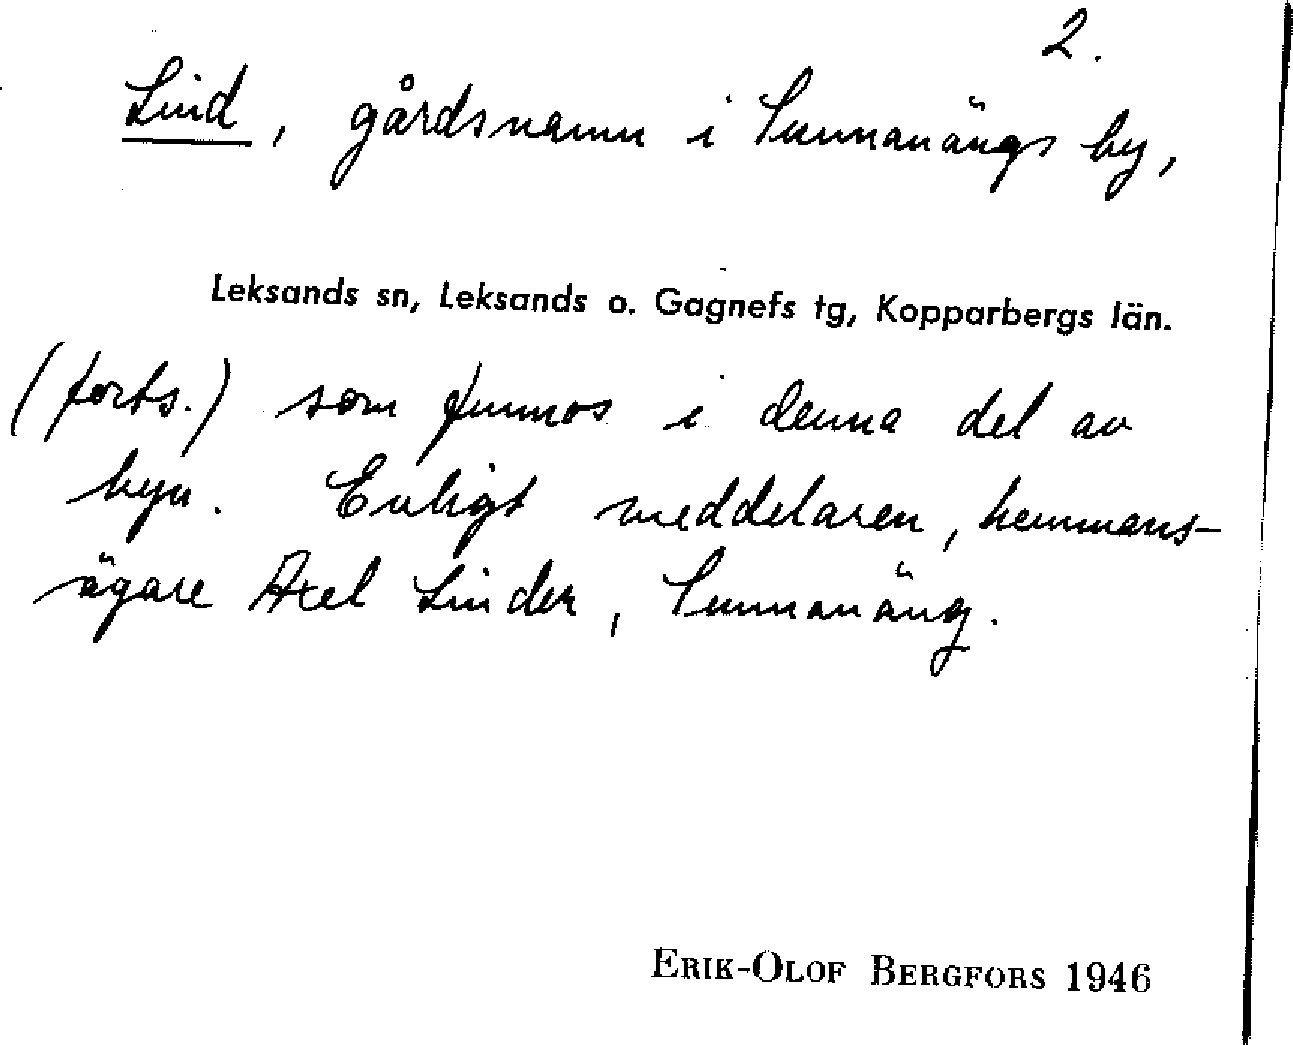 2.
Lind, gårdsnamn i Sunnanängs by,
Leksands sn, Leksands o. Gagnefs tg, Kopparbergs län.
(forts.) som funnos i denna del av
byn. Enligt meddelaren, hemmans-
ägare Axel Linder, Sunnanäng.
ERIK-OLOF BERGFORS 1946